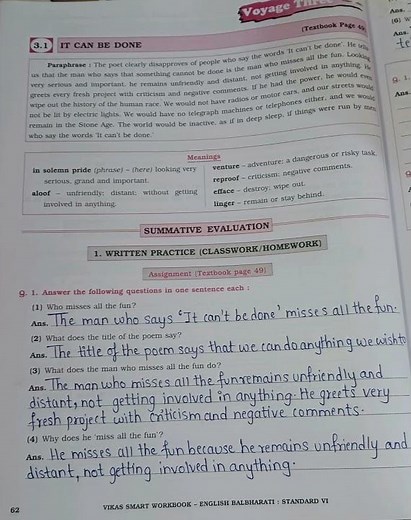 Voyage Three
(Textbook Page 49)
3.1 IT CAN BE DONE
Paraphrase : The poet clearly disapproves of people who say the words 'It can't be done'. He tells
us that the man who says that something cannot be done is the man who misses all the fun. Looking
very serious and important, he remains unfriendly and distant, not getting involved in anything. He
greets every fresh project with criticism and negative comments. If he had the power, he would even
wipe out the history of the human race. We would not have radios or motor cars, and our streets would
not be lit by electric lights. We would have no telegraph machines or telephones either, and we would
remain in the Stone Age. The world would be inactive, as if in deep sleep, if things were run by men
who say the words 'It can't be done.'
Meanings
in solemn pride (phrase) – (here) looking very
serious, grand and important.
aloof – unfriendly; distant; without getting
involved in anything.
venture – adventure; a dangerous or risky task.
reproof – criticism; negative comments.
efface – destroy; wipe out.
linger – remain or stay behind.
SUMMATIVE EVALUATION
1. WRITTEN PRACTICE (CLASSWORK/HOMEWORK)
Assignment (Textbook page 49)
Q. 1. Answer the following questions in one sentence each :
(1) Who misses all the fun?
Ans. The man who says 'It can't be done' misses all the fun.
(2) What does the title of the poem say?
Ans. The title of the poem says that we can do anything we wish to
(3) What does the man who misses all the fun do?
Ans. The man who misses all the fun remains unfriendly and
distant, not getting involved in anything. He greets very
fresh project with criticism and negative comments.
(4) Why does he 'miss all the fun'?
Ans. He misses all the fun because he remains unfriendly and
distant, not getting involved in anything.
62
VIKAS SMART WORKBOOK – ENGLISH BALBHARATI : STANDARD VI